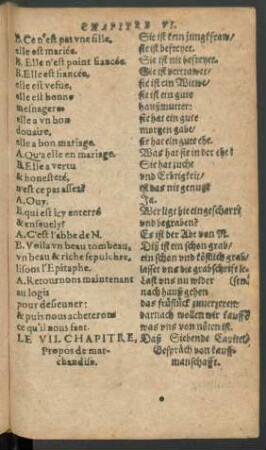 CHAPITRE VI.
B. Ce n'est pas vne fille, Sie ist kein jungkfraw/
elle est mariée. sie ist befreyet.
B. Elle n'est point fiancée. Sie ist nit befreyet.
B. Elle est fiancée, Sie ist vertrawet/
elle est vefue, sie ist ein Witwe/
elle est bonne sie ist ein gute
mesnagere haußmutter:
elle a vn bon sie hat ein gute
douaire, morgen gabe/
elle a bon mariage. sie hat ein gute ehe.
A. Qu'a elle en mariage. Was hat sie in der ehe?
B. Elle a vertu Sie hat zucht
& honesteté, vnd Erbrigkeit/
n'est ce pas assez? ist das nit genug?
A. Ouy. Ja.
B. qui est icy enterré Wer lige hie eingescharrt
& enseuely? vnd begraben?
A. C'est l'abbé de N. Es ist der Abt von N.
B. Voila vn beau tombeau, Diß ist ein schön grab/
vn beau & riche sepulchre, ein schön vnd köstlich grab/
lisons l'Epitaphe. lasset vns die grabschrifft le-
A. Retournons maintenant Last vns nu wider (sen.
au logis nach hauß gehen
pour desieuner: das frůstück zuuerzeren:
& puis nous acheterons darnach wöllen wir kauffē
ce qu'il nous faut. was vns von nöten ist.
LE VII. CHAPITRE, Daß Siebende Capitel/
Propos de mar- Gespräch von kauff-
chandise. manschafft.